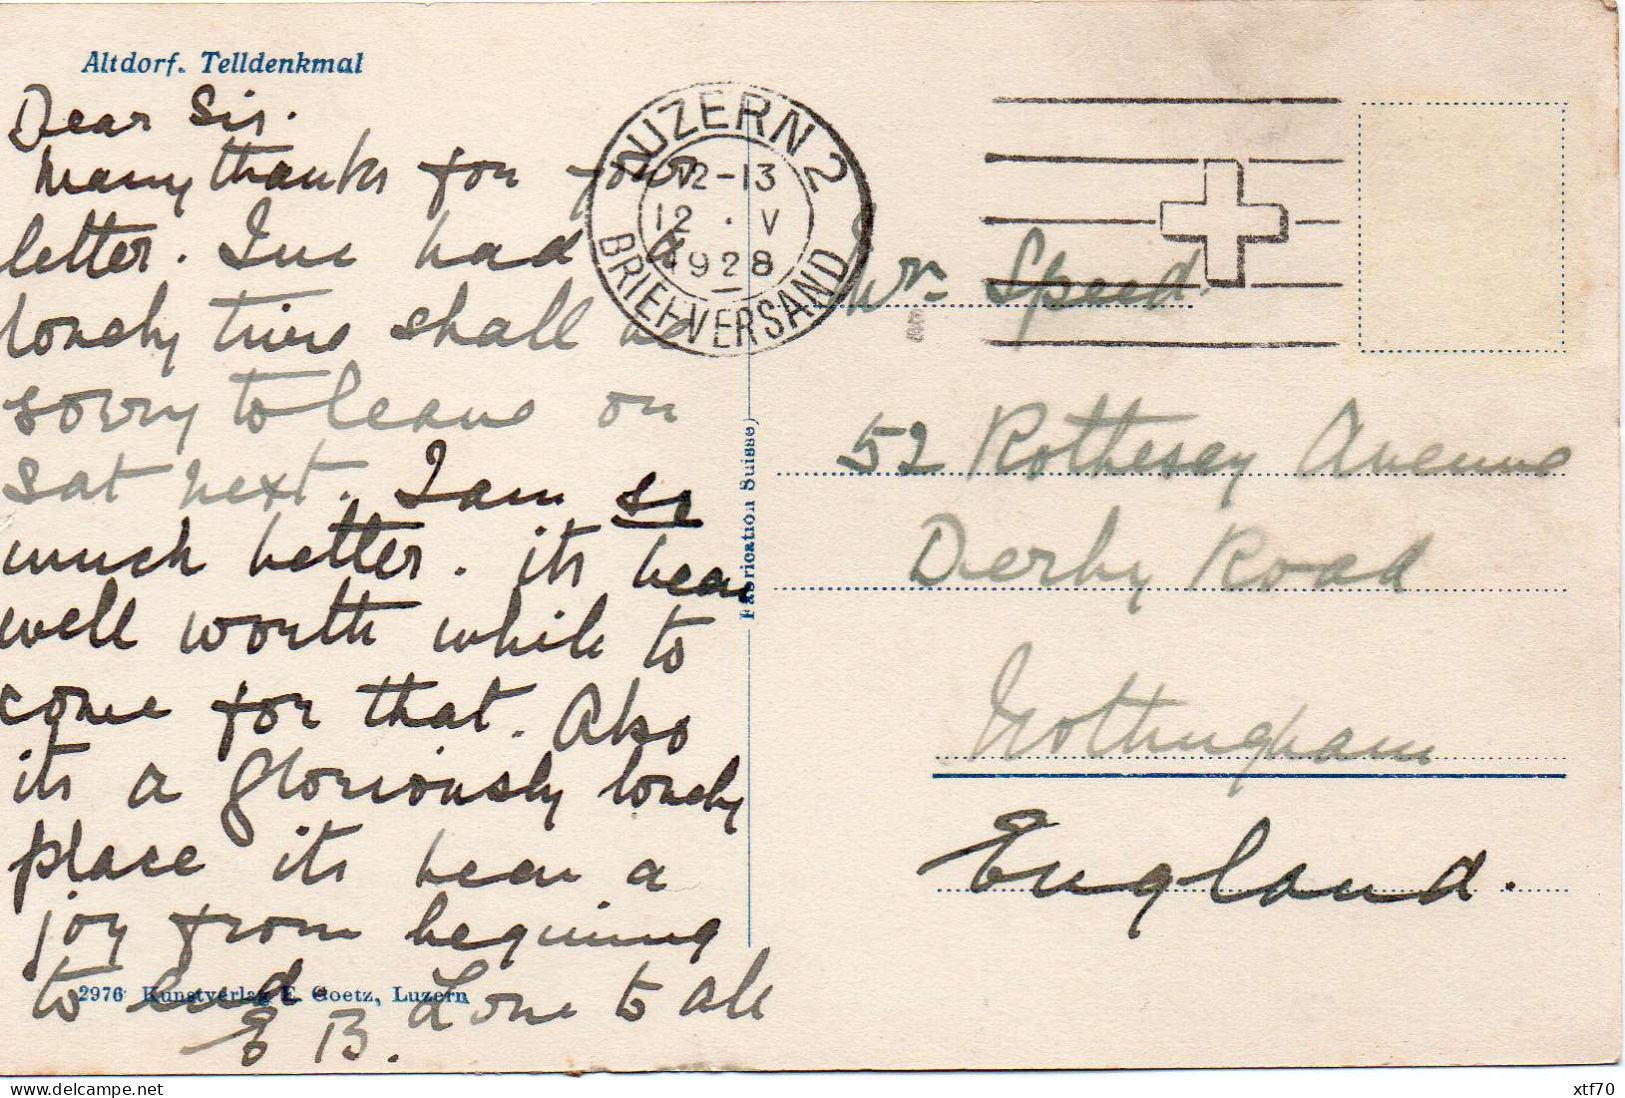 Altdorf. Telldenkmal
Dear Sir.
Many thanks for your
letter. Ive had a
lovely time shall be
sorry to leave on
sat next. I am so
much better. its been
well worth while to
come for that. Also
its a gloriously lovely
place its been a
joy from begining
to end Love to all
E B.
2976 Kunstverlag E. Goetz, Luzern
Fabrication Suisse)
LUZERN 2
12-13
12 . V
1928
BRIEFVERSAND
Mr Speed.
52 Rothesay Avenue
Derby Road
Nottingham
England.
Delcampe.net
xtf70